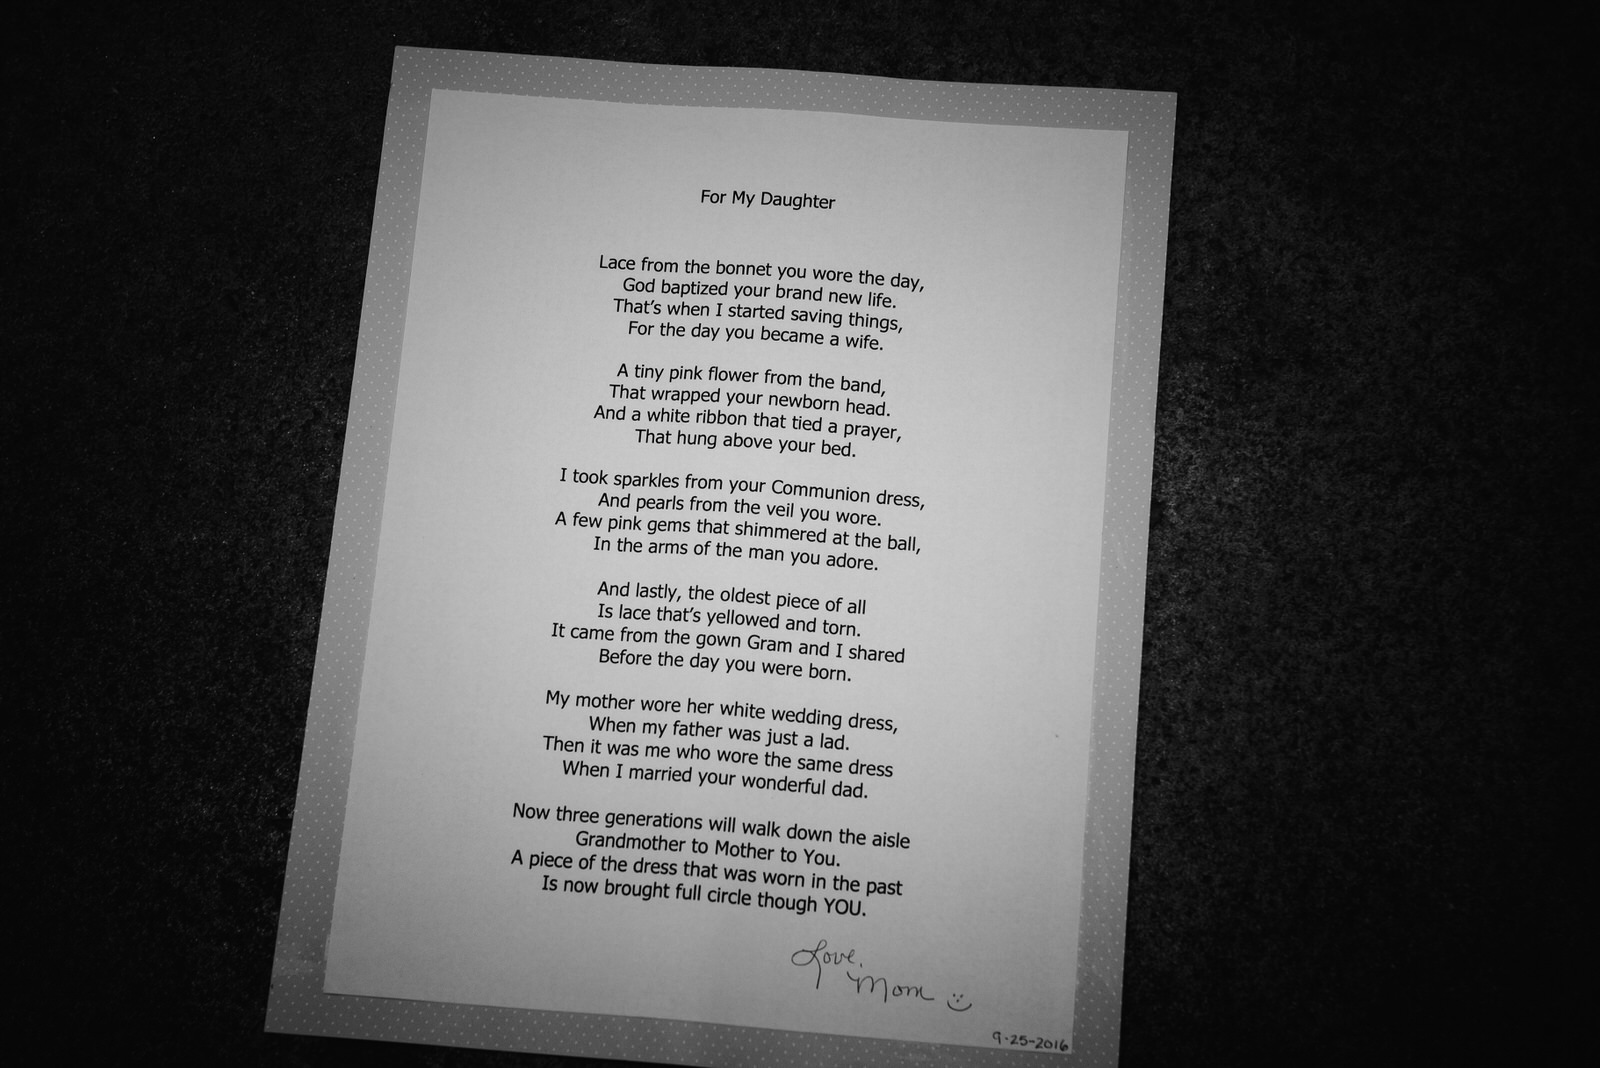 For My Daughter
Lace from the bonnet you wore the day,
God baptized your brand new life.
That's when I started saving things,
For the day you became a wife.
A tiny pink flower from the band,
That wrapped your newborn head.
And a white ribbon that tied a prayer,
That hung above your bed.
I took sparkles from your Communion dress,
And pearls from the veil you wore.
A few pink gems that shimmered at the ball,
In the arms of the man you adore.
And lastly, the oldest piece of all
Is lace that's yellowed and torn.
It came from the gown Gram and I shared
Before the day you were born.
My mother wore her white wedding dress,
When my father was just a lad.
Then it was me who wore the same dress
When I married your wonderful dad.
Now three generations will walk down the aisle
Grandmother to Mother to You.
A piece of the dress that was worn in the past
Is now brought full circle though YOU.
Love,
Mom
9-25-2016